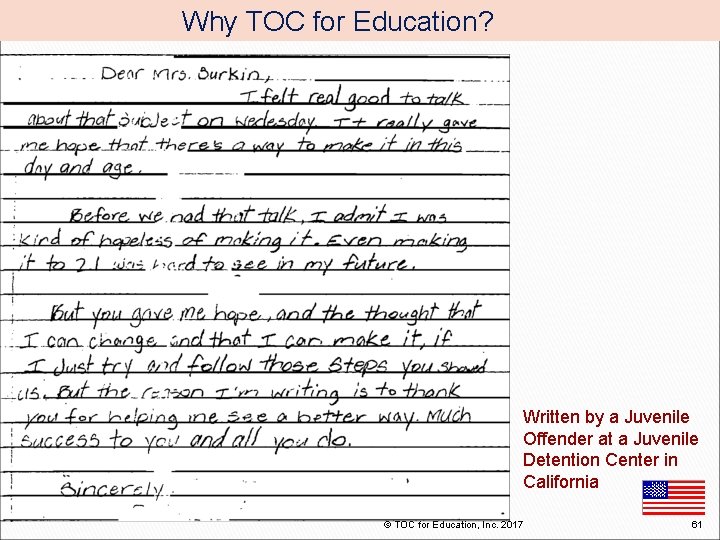 Why TOC for Education?
Dear Mrs. Burkin,
I felt real good to talk
about that subject on Wedesday. It really gave
me hope that there's a way to make it in this
day and age.
Before we had that talk, I admit I was
kind of hopeless of making it. Even making
it to 21 was hard to see in my future.
But you gave me hope, and the thought that
I can change and that I can make it, if
I Just try and follow those steps you showed
us. But the reason I'm writing is to thank
you for helping me see a better way. Much
success to you and all you do.
Sincerely
Written by a Juvenile
Offender at a Juvenile
Detention Center in
California
© TOC for Education, Inc. 2017
61